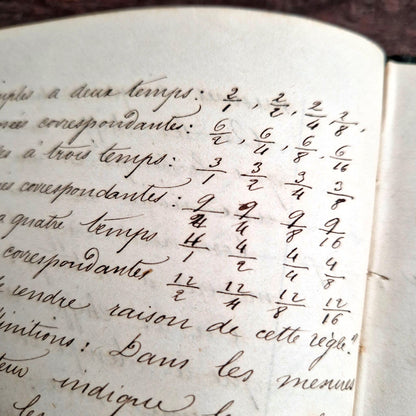 mples a deux temps: 2/1, 2/2, 2/4, 2/8,
correspondantes: 6/2, 6/4, 6/8, 6/16
à trois temps: 3/1 3/2 3/4 3/8
correspondantes: 9/2 9/4 9/8 9/16
a quatre temps 4/1 4/2 4/4 4/8
correspondantes 12/2 12/4 12/8 12/16
rendre raison de cette règle?
finitions: Dans les mesures
indique
les